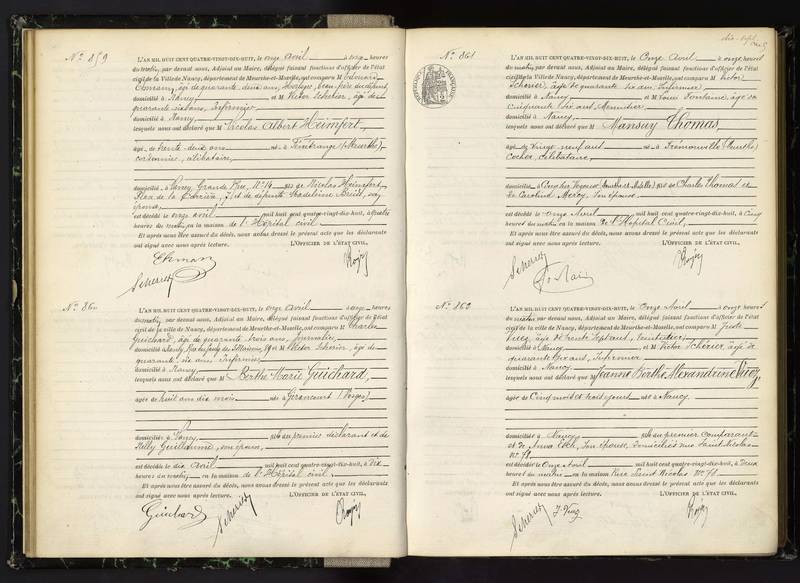 N° 859
L'AN MIL HUIT CENT QUATRE-VINGT-DIX-HUIT, le onze avril à onze heures
du matin, par devant nous, Adjoint au Maire, délégué faisant fonctions d'officier de l'état
civil de la Ville de Nancy, département de Meurthe-et-Moselle, ont comparu M
Ehmann, âgé de quarante deux ans, Horloger, beau père du défunt,
domicilié à Nancy et M Victor Scherier, âgé de
quarante six ans, Infirmier
domicilié à Nancy
lesquels nous ont déclaré que M Nicolas Albert Heimfert,
âgé de trente deux ans né à Fénétrange (Meurthe)
cordonnier, célibataire,
domicilié à Nancy, Grande Rue, N° 14 fils de Nicolas Heimfert,
et de défunte Madeleine
épouse
est décédé le onze avril mil huit cent quatre-vingt-dix-huit, à
heures du matin en la maison de l'Hôpital civil
Et après nous être assuré du décès, nous avons dressé le présent acte que les déclarants
ont signé avec nous après lecture. L'OFFICIER DE L'ÉTAT CIVIL,
Ehmann
Scherier
N° 860
L'AN MIL HUIT CENT QUATRE-VINGT-DIX-HUIT, le onze avril à onze heures
du matin, par devant nous, Adjoint au Maire, délégué faisant fonctions d'officier de l'état
civil de la Ville de Nancy, département de Meurthe-et-Moselle, ont comparu M Charles
Guichard, âgé de quarante trois ans, Journalier,
domicilié à et M Victor Scherier, âgé de
quarante six ans, Infirmier
domicilié à Nancy
lesquels nous ont déclaré que M Berthe Marie Guichard,
âgée de huit ans dix mois née à Girancourt (Vosges)
domiciliée à Nancy fille du premier déclarant et de
Nelly Guillaume, son épouse,
est décédée le dix avril mil huit cent quatre-vingt-dix-huit, à dix
heures du matin en la maison de l'Hôpital civil
Et après nous être assuré du décès, nous avons dressé le présent acte que les déclarants
ont signé avec nous après lecture. L'OFFICIER DE L'ÉTAT CIVIL,
Guichard
Scherier
N° 861
L'AN MIL HUIT CENT QUATRE-VINGT-DIX-HUIT, le Onze Avril à onze heures
du matin, par devant nous, Adjoint au Maire, délégué faisant fonctions d'officier de l'état
civil de la Ville de Nancy, département de Meurthe-et-Moselle, ont comparu M Victor
Scherier, âgé de quarante six ans, Infirmier
domicilié à Nancy et M Louis Fontaine, âgé de
cinquante six ans, Menuisier
domicilié à Nancy
lesquels nous ont déclaré que M Mansuy Thomas,
âgé de vingt neuf ans né à Frémonville (Meurthe)
Cocher, célibataire,
domicilié à (Meurthe et Moselle) fils de Charles Thomas et
de Caroline Mercy, son épouse,
est décédé le onze Avril mil huit cent quatre-vingt-dix-huit, à Cinq
heures du matin en la maison de l'Hôpital Civil,
Et après nous être assuré du décès, nous avons dressé le présent acte que les déclarants
ont signé avec nous après lecture. L'OFFICIER DE L'ÉTAT CIVIL,
Scherier
N° 862
L'AN MIL HUIT CENT QUATRE-VINGT-DIX-HUIT, le Onze Avril à onze heures
du matin, par devant nous, Adjoint au Maire, délégué faisant fonctions d'officier de l'état
civil de la ville de Nancy, département de Meurthe-et-Moselle, ont comparu M
âgé de trente sept ans,
domicilié à Nancy et M Victor Scherier, âgé de
quarante six ans, Infirmier
domicilié à Nancy
lesquels nous ont déclaré que M Jeanne Berthe Alexandrine
âgée de Cinq mois et huit jours née à Nancy.
domiciliée à Nancy fille du premier comparant
et de Anna son épouse, domiciliés rue Saint Nicolas
N° 78
est décédée le Onze Avril mil huit cent quatre-vingt-dix-huit, à deux
heures du matin en la maison Rue Saint Nicolas N° 78
Et après nous être assuré du décès, nous avons dressé le présent acte que les déclarants
ont signé avec nous après lecture. L'OFFICIER DE L'ÉTAT CIVIL,
Scherier